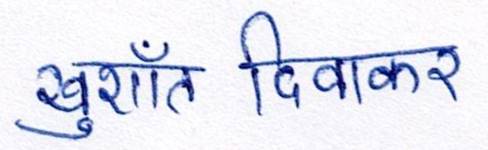 खुशाँत दिवाकर